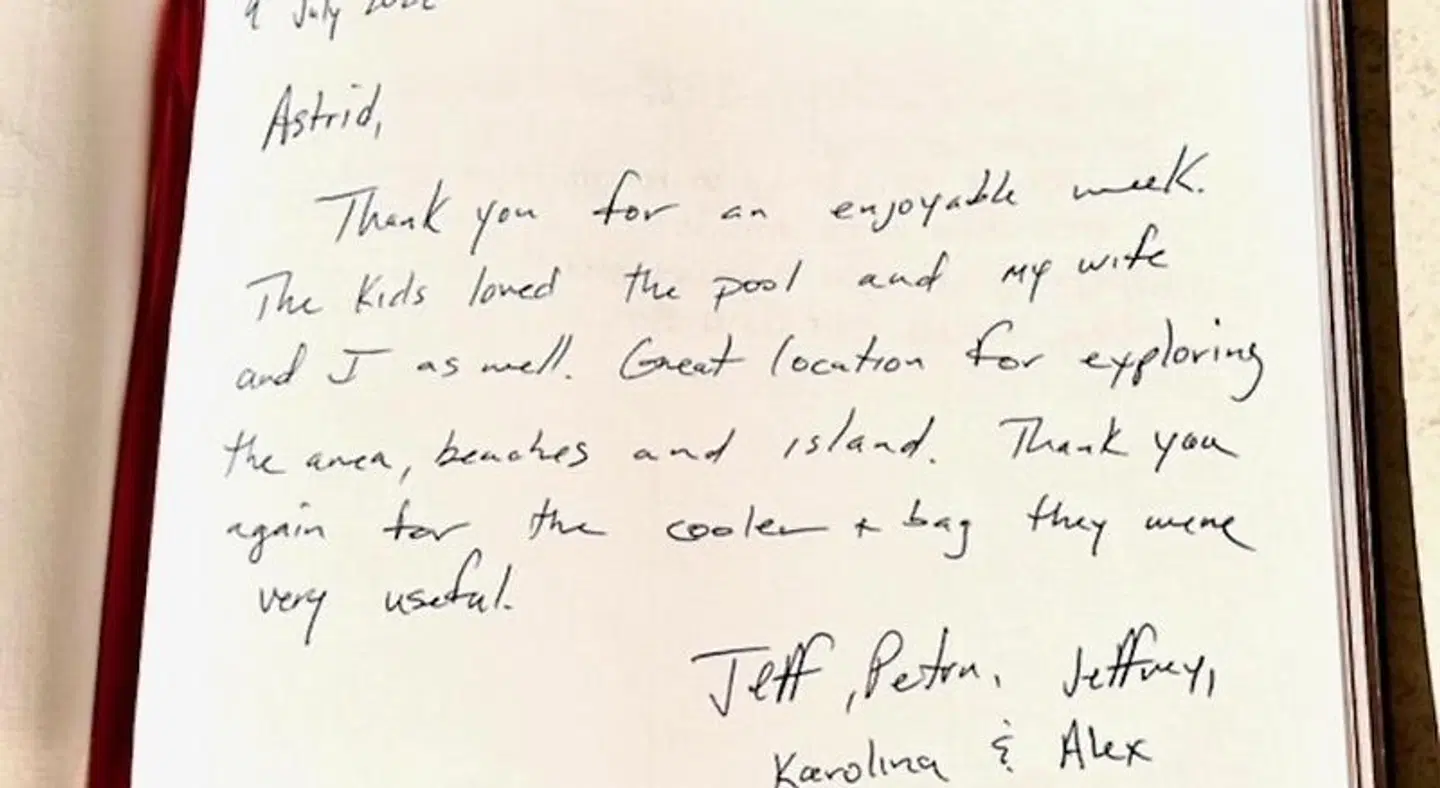 9 July 2022
Astrid,
Thank you for an enjoyable week.
The kids loved the pool and my wife
and I as well. Great location for exploring
the area, beaches and island. Thank you
again for the cooler + bag they were
very useful.
Jeff, Petra, Jeffrey,
Karolina & Alex